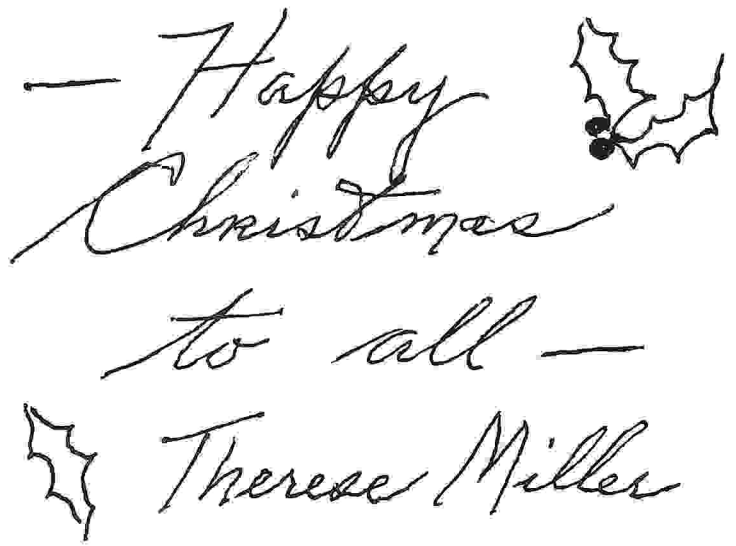 — Happy
Christmas
to all —
Therese Miller